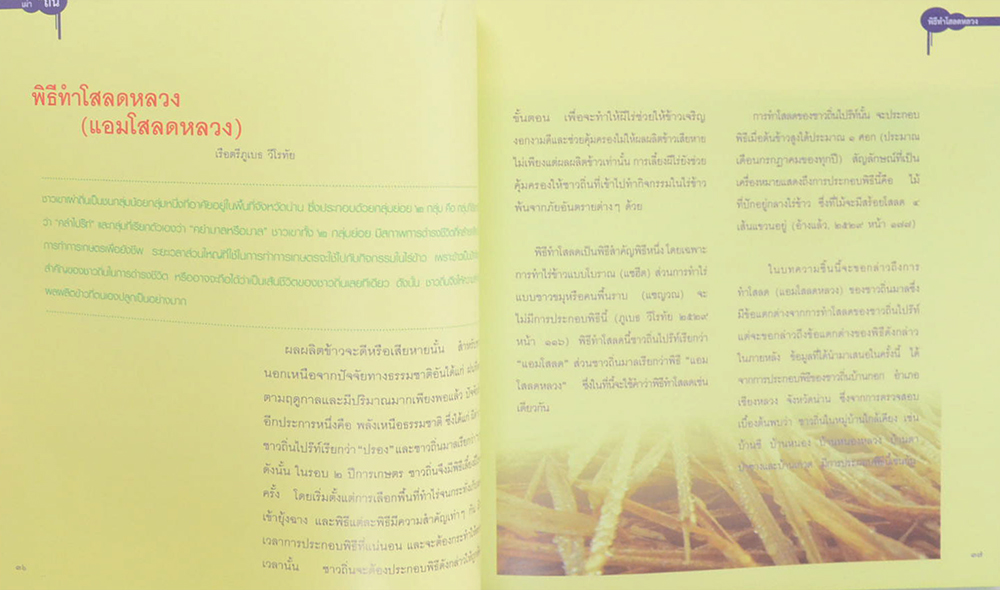 เผ่า ถิ่น
พิธีทำโสลดหลวง
(แอมโสลดหลวง)
เรือตรีภูเบธ วีโรทัย
ชาวเขาเผ่าถิ่นเป็นชนกลุ่มน้อยกลุ่มหนึ่งที่อาศัยอยู่ในพื้นที่จังหวัดน่าน ซึ่งประกอบด้วยกลุ่มย่อย ๒ กลุ่ม คือ
ว่า "คลำไปร๊ท์" และกลุ่มที่เรียกตัวเองว่า "คย่ามาลหรือมาล" ชาวเขาทั้ง ๒ กลุ่มย่อย มีสภาพการดำรงชีวิตที่
การทำการเกษตรเพื่อยังชีพ ระยะเวลาส่วนใหญ่ที่ใช้ในการทำการเกษตรจะใช้ไปกับกิจกรรมในไร่ข้าว
สำคัญของชาวถิ่นในการดำรงชีวิต หรืออาจจะถือได้ว่าเป็นเส้นชีวิตของชาวถิ่นเลยทีเดียว ดังนั้น
ผลผลิตข้าวที่ตนเองปลูกเป็นอย่างมาก
ผลผลิตข้าวจะดีหรือเสียหายนั้น
นอกเหนือจากปัจจัยทางธรรมชาติอันได้แก่
ตามฤดูกาลและมีปริมาณมากเพียงพอแล้ว
อีกประการหนึ่งคือ พลังเหนือธรรมชาติ ซึ่งได้แก่
ชาวถิ่นไปร๊ท์เรียกว่า "ปรอง" และชาวถิ่นมาลเรียกว่า
ดังนั้น ในรอบ ๒ ปีการเกษตร ชาวถิ่นจึงมีพิธี
ครั้ง โดยเริ่มตั้งแต่การเลือกพื้นที่ทำไร่จนกระทั่ง
เข้ายุ้งฉาง และพิธีแต่ละพิธีมีความสำคัญเท่าๆ กัน
เวลาการประกอบพิธีที่แน่นอน และจะต้องกระทำ
เวลานั้น ชาวถิ่นจะต้องประกอบพิธีดังกล่าว
๓๖
พิธีทำโสลดหลวง
ขั้นตอน เพื่อจะทำให้ผีไร่ช่วยให้ข้าวเจริญ
งอกงามดีและช่วยคุ้มครองไม่ให้ผลผลิตข้าวเสียหาย
ไม่เพียงแต่ผลผลิตข้าวเท่านั้น การเลี้ยงผีไร่ยังช่วย
คุ้มครองให้ชาวถิ่นที่เข้าไปทำกิจกรรมในไร่ข้าว
พ้นจากภัยอันตรายต่างๆ ด้วย
พิธีทำโสลดเป็นพิธีสำคัญพิธีหนึ่ง โดยเฉพาะ
การทำไร่ข้าวแบบโบราณ (แซฮีด) ส่วนการทำไร่
แบบชาวขมุหรือคนพื้นราบ (แซญวณ) จะ
ไม่มีการประกอบพิธีนี้ (ภูเบธ วีโรทัย ๒๕๒๙
หน้า ๑๑๖) พิธีทำโสลดนี้ชาวถิ่นไปร๊ท์เรียกว่า
"แอมโสลด" ส่วนชาวถิ่นมาลเรียกว่าพิธี "แอม
โสลดหลวง" ซึ่งในที่นี้จะใช้คำว่าพิธีทำโสลดเช่น
เดียวกัน
การทำโสลดของชาวถิ่นไปร๊ท์นั้น จะประกอบ
พิธีเมื่อต้นข้าวสูงได้ประมาณ ๑ ศอก (ประมาณ
เดือนกรกฎาคมของทุกปี) สัญลักษณ์ที่เป็น
เครื่องหมายแสดงถึงการประกอบพิธีนี้คือ ไม้
ที่ปักอยู่กลางไร่ข้าว ซึ่งที่ไม้จะมีสร้อยโสลด ๔
เส้นแขวนอยู่ (อ้างแล้ว, ๒๕๒๙ หน้า ๑๗๗)
ในบทความชิ้นนี้จะขอกล่าวถึงการ
ทำโสลด (แอมโสลดหลวง) ของชาวถิ่นมาลซึ่ง
มีข้อแตกต่างจากการทำโสลดของชาวถิ่นไปร๊ท์
แต่จะขอกล่าวถึงข้อแตกต่างของพิธีดังกล่าว
ในภายหลัง ข้อมูลที่ได้นำมาเสนอในครั้งนี้ ได้
จากการประกอบพิธีของชาวถิ่นบ้านกอก อำเภอ
เชียงกลาง จังหวัดน่าน ซึ่งจากการตรวจสอบ
เบื้องต้นพบว่า ชาวถิ่นในหมู่บ้านใกล้เคียง เช่น
บ้านซี บ้านหนอง บ้านหนองหลวง บ้านตา
๓๗